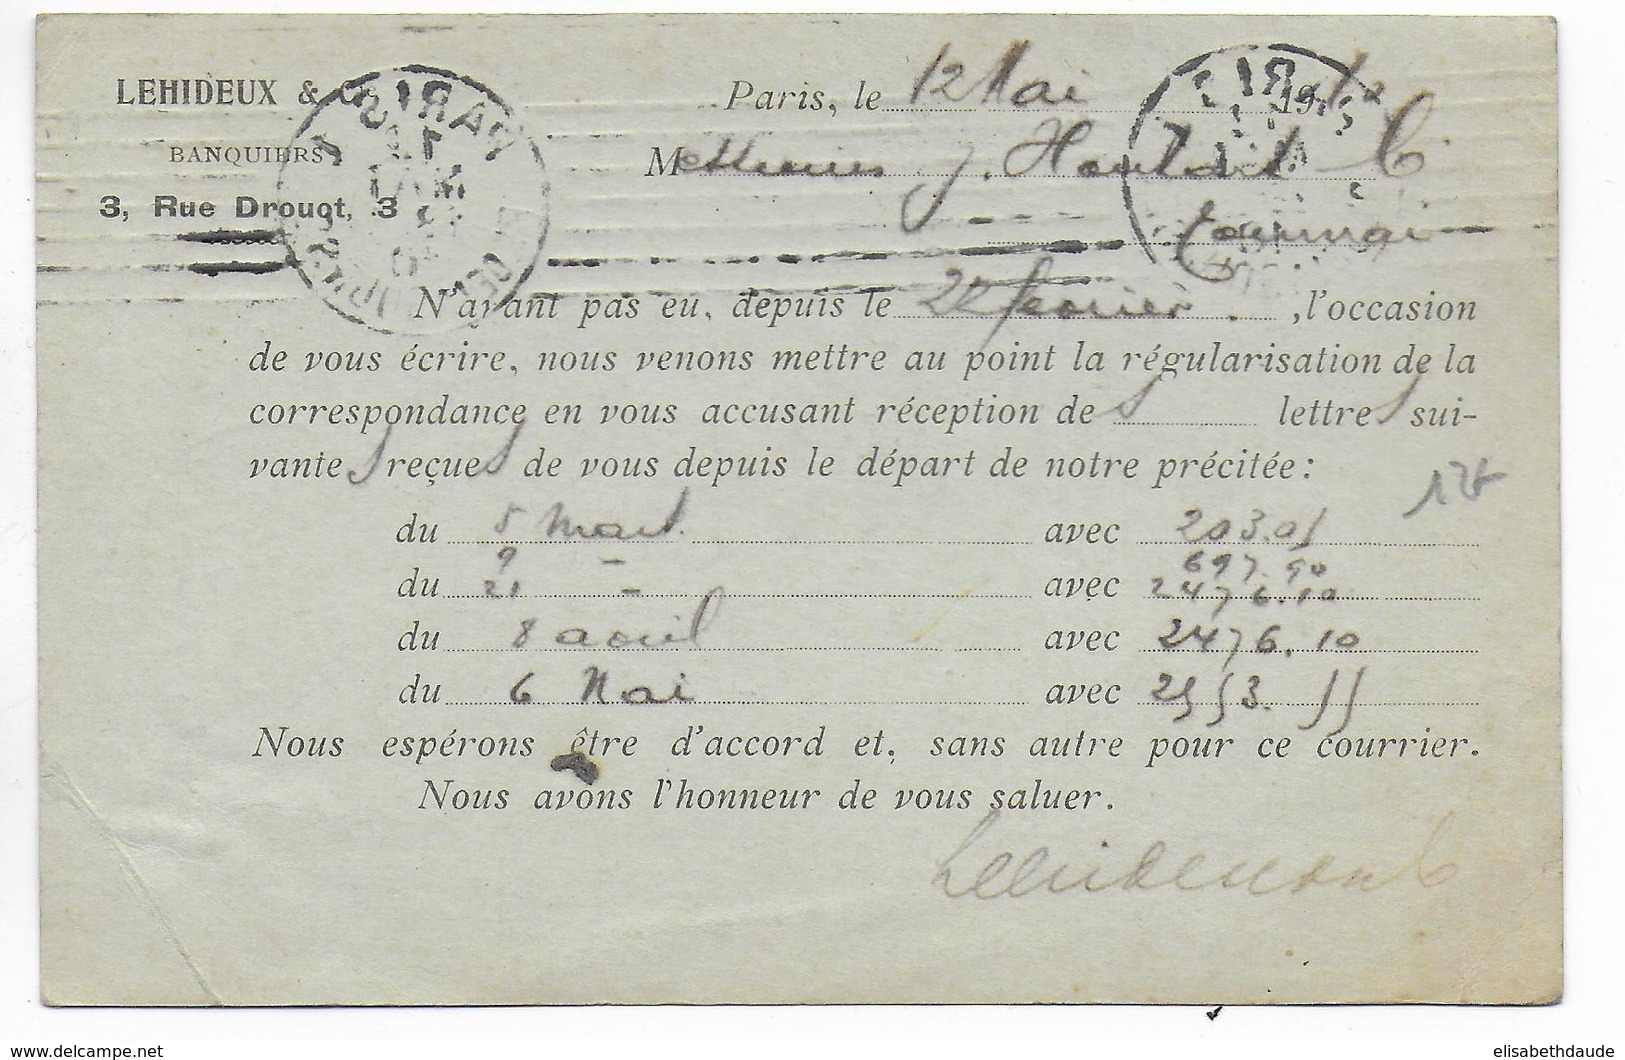 LEHIDEUX & Cie
BANQUIERS
3, Rue Drouot, 3
Paris, le 12 Mai 191
Messieurs J. C.
Tournai
N'ayant pas eu, depuis le 22 février , l'occasion
de vous écrire, nous venons mettre au point la régularisation de la
correspondance en vous accusant réception de s lettres sui-
vantes reçues de vous depuis le départ de notre précitée:
du 5 Mars avec 203.05
9 – 697.90
du 21 – avec 2476.10
du 8 avril avec 2476.10
du 6 Mai avec 2553.55
Nous espérons être d'accord et, sans autre pour ce courrier.
Nous avons l'honneur de vous saluer.
PARIS
www.delcampe.net
elisabethdaude